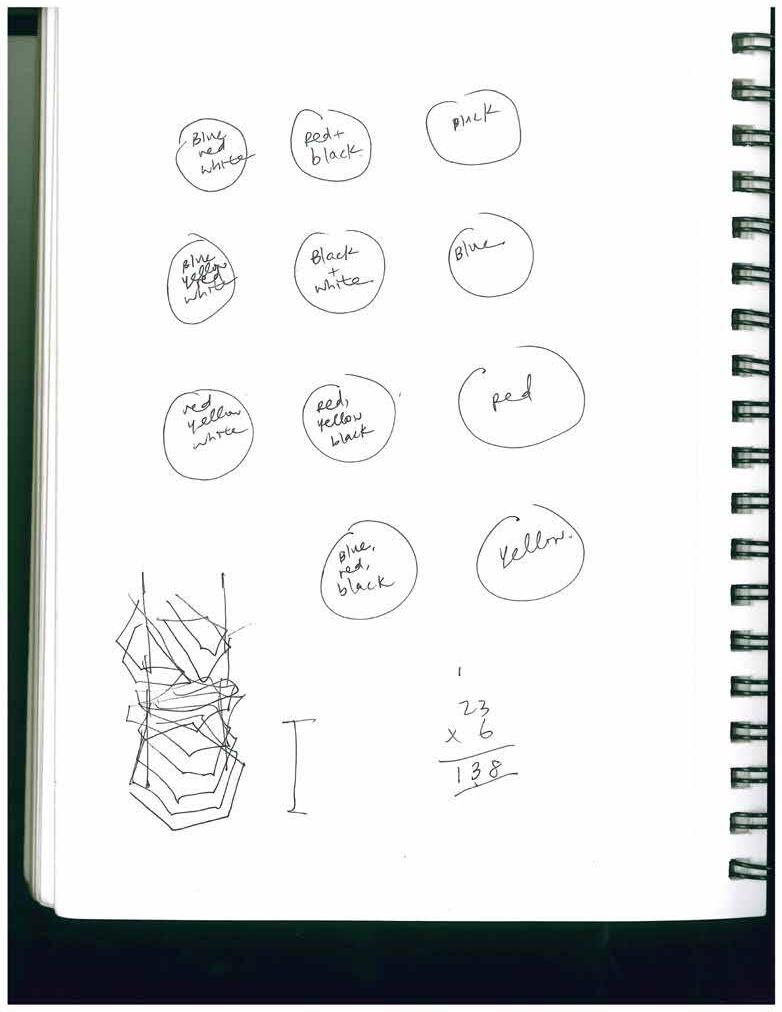 Blue,
red
white
Red +
black
Black
Blue
yellow
red
white
Black
+
white
Blue
red
yellow
white
red,
yellow
black
red
Blue,
red,
black
yellow.
1
23
x 6
138